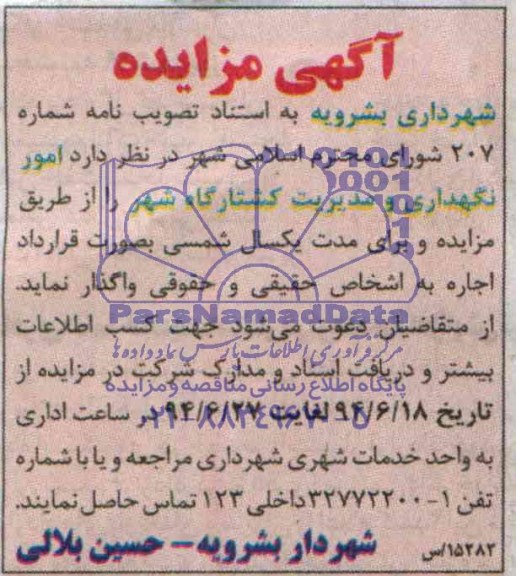 آگهی مزایده
شهرداری بشرویه به استناد تصویب نامه شماره
۲۰۷ شورای محترم اسلامی شهر در نظر دارد امور
نگهداری و مدیریت کشتارگاه شهر را از طریق
مزایده و برای مدت یکسال شمسی بصورت قرارداد
اجاره به اشخاص حقیقی و حقوقی واگذار نماید.
از متقاضیان دعوت می‌شود جهت کسب اطلاعات
بیشتر و دریافت اسناد و مدارک شرکت در مزایده از
تاریخ ۹۴/۶/۱۸ لغایت ۹۴/۶/۲۷ در ساعت اداری
به واحد خدمات شهری شهرداری مراجعه و یا با شماره
تفن ۱-۳۲۷۷۲۲۰۰ داخلی ۱۲۳ تماس حاصل نمایند.
شهردار بشرویه – حسین بلالی
۱۵۲۸۲/س
ParsNamadData
مرکز فرآوری اطلاعات پارس نماد داده ها
پایگاه اطلاع رسانی مناقصه و مزایده